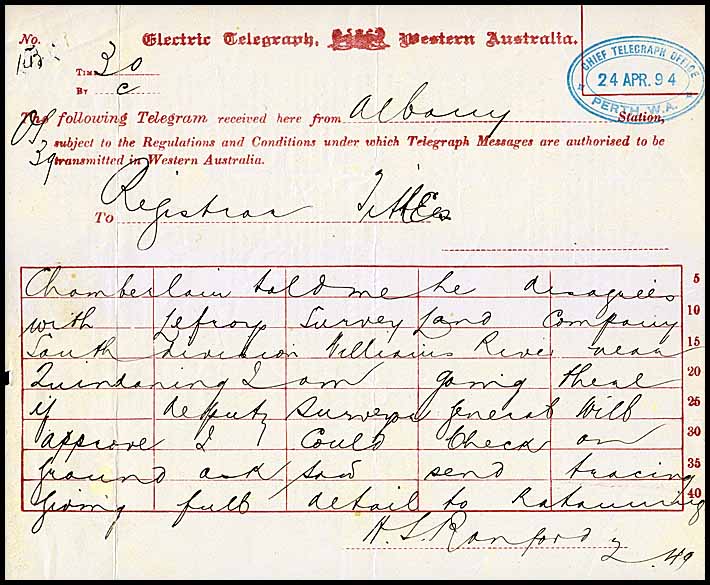 No.
Electric Telegraph, Western Australia.
Time 30
By c
CHIEF TELEGRAPH OFFICE
24 APR. 94
PERTH. W.A.
The following Telegram received here from Albany Station,
subject to the Regulations and Conditions under which Telegraph Messages are authorised to be
39
transmitted in Western Australia.
To Registrar Titles
Chamberlain told me he disagrees 5
with Lefroys Survey Land Company 10
South division Williams River near 15
Quindaning I am going there 20
if deputy Surveyor General will 25
approve I could check on 30
ground ask said send tracing 35
giving full detail to Katanning 40
H. S. Ranford
2 49